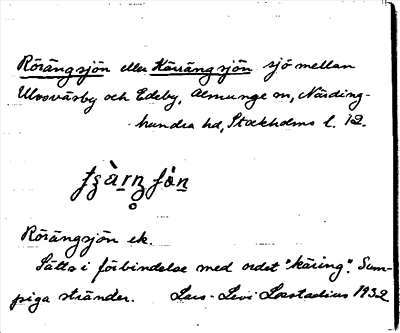 Rörängsjön eller Käriängsjön sjö mellan
Ulvsväsby och Edeby, Almunge sn, Närding-
hundra hd, Stockholms l. 12.
Rörängsjön ek.
Sätts i förbindelse med ordet "käring". Sum-
piga stränder. Lars-Levi Læstadius 1932